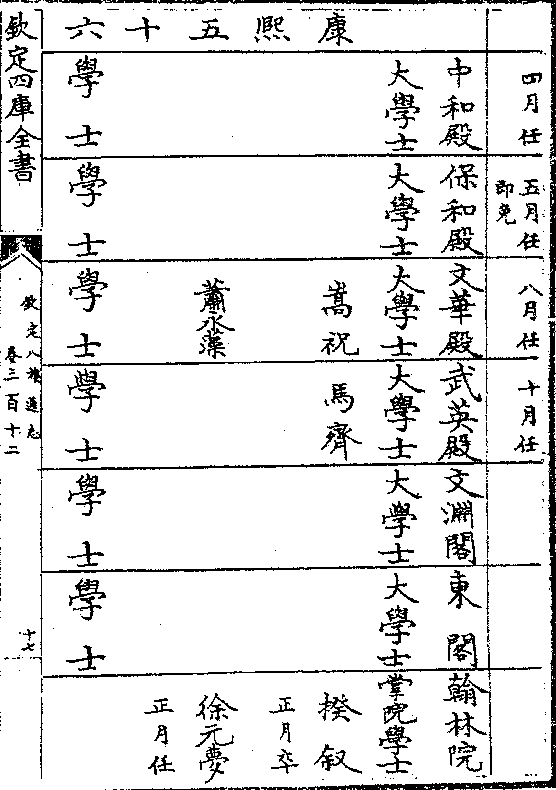 四月任
五月任
即免
八月任
十月任
中和殿
大學士
保和殿
大學士
文華殿
大學士
武英殿
大學士
文淵閣
大學士
東閣
大學士
翰林院
掌院學士
嵩祝
馬齊
揆叙
正月卒
蕭永藻
徐元夢
正月任
學士
學士
學士
學士
學士
學士
康熙五十六
欽定四庫全書
欽定八旗通志
卷三百十二
十七